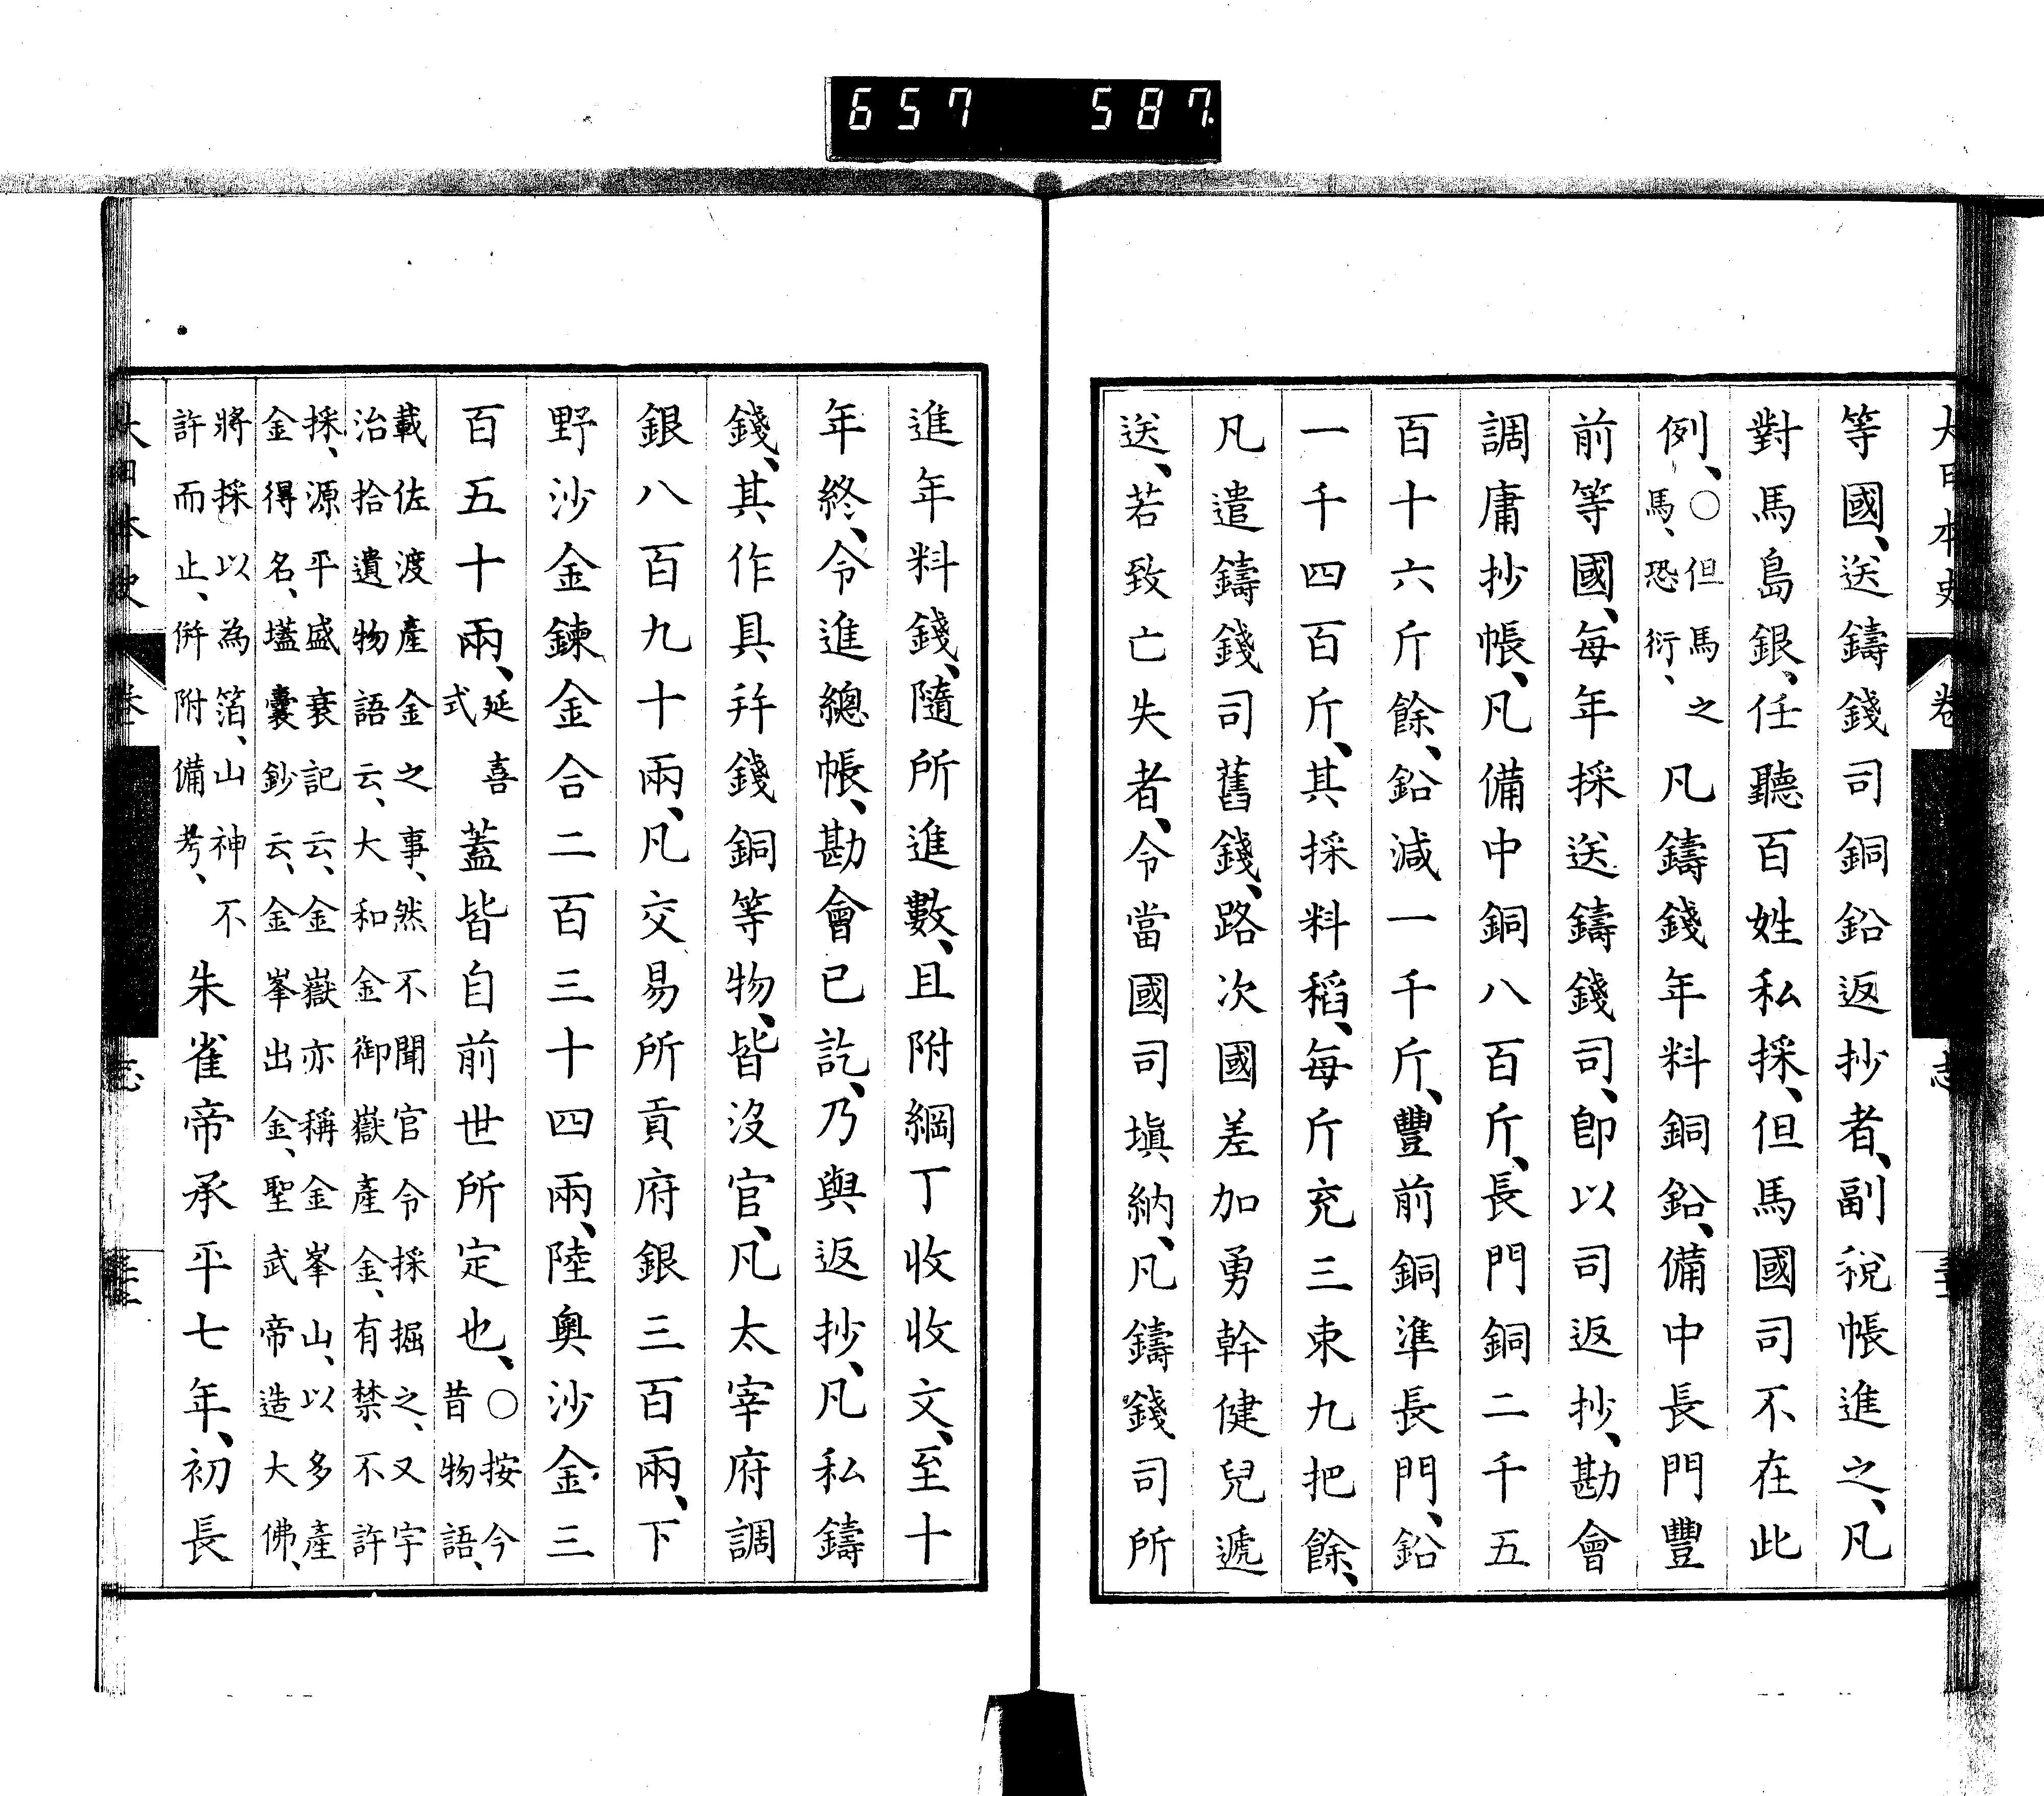 657 587.
大日本史 卷 志
等國、送鑄錢司銅鉛返抄者、副稅帳進之、凡
對馬島銀、任聽百姓私採、但馬國司不在此
例、○但馬之馬、恐衍、凡鑄錢年料銅鉛、備中長門豐
前等國、每年採送鑄錢司、卽以司返抄、勘會
調庸抄帳、凡備中銅八百斤、長門銅二千五
百十六斤餘、鉛減一千斤、豐前銅準長門、鉛
一千四百斤、其採料稻、每斤充三束九把餘、
凡遣鑄錢司舊錢、路次國差加勇幹健兒遞
送、若致亡失者、令當國司塡納、凡鑄錢司所
進年料錢、隨所進數、且附綱丁收收文、至十
年終、令進總帳、勘會已訖、乃與返抄、凡私鑄
錢、其作具、幷錢銅等物、皆沒官、凡太宰府調
銀八百九十兩、凡交易所貢府銀三百兩、下
野沙金鍊金合二百三十四兩、陸奧沙金三
百五十兩、延喜式蓋皆自前世所定也、○按今昔物語、
載佐渡產金之事、然不聞官令採掘之、又宇
治拾遺物語云、大和金御嶽產金、有禁不許
採、源平盛衰記云、金嶽亦稱金峯山、以多產
金得名、壒囊鈔云、金峯出金、聖武帝造大佛、
將採以為箔、山神不
許而止、倂附備考、
朱雀帝承平七年、初長
大日本史 卷 志